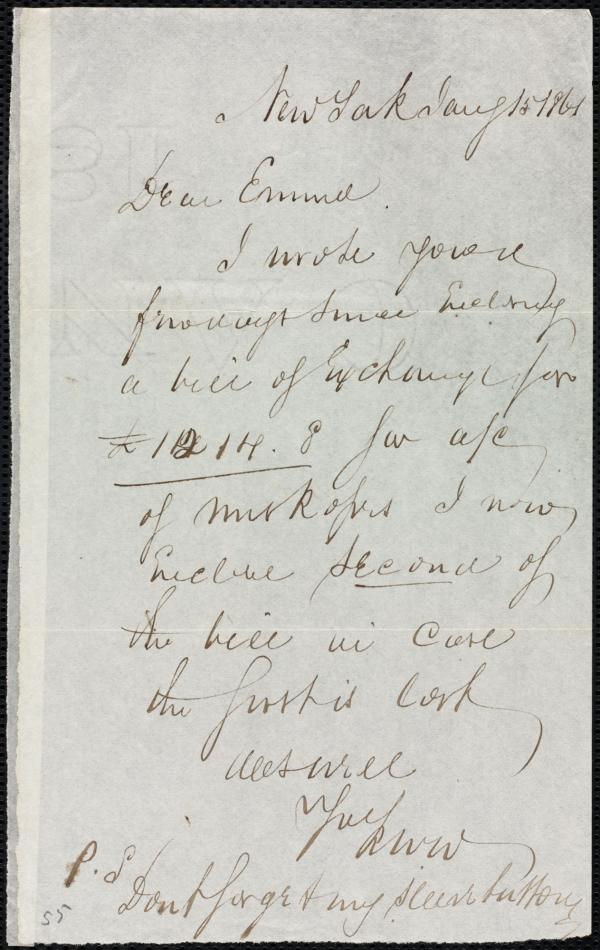 New York Jany 15 1861
Dear Edmund.
I wrote you
a fortnight since enclosing
a bill of Exchange for
£ 14. 8 for a/c
of I now
Enclose second of
the bill in case
the first is lost
all's well
Yrs
P.S
Dont forget my sleeve buttons
55